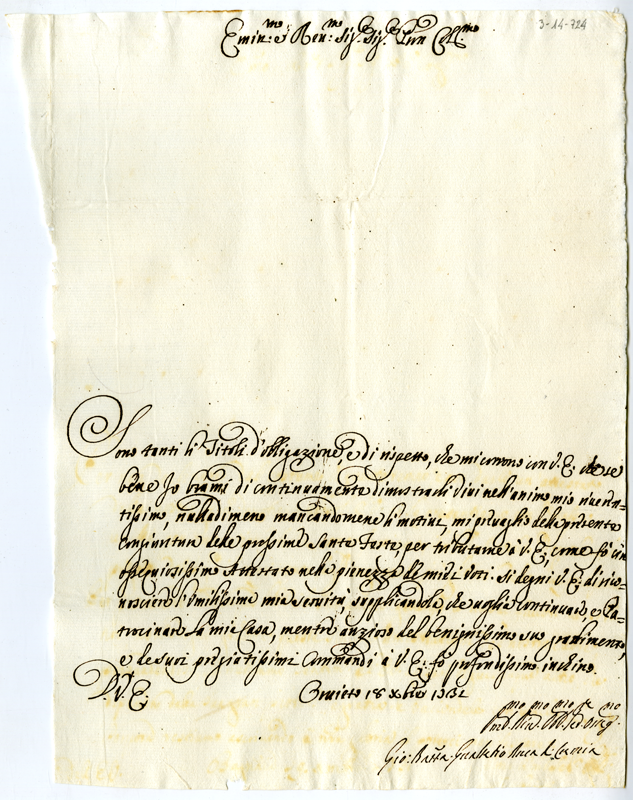 3-14-724
Emin:mo e Ren:mo Sig.r Sig.r Pron Coll:mo
Sono tanti li Titoli d'obligazione, e di rispetto, che mi corrono con V. E. che se
bene Io brami di continuamente dimostrarli vivi nell'animo mio riveren-
tissimo, nulladimeno mancandomene li motivi, mi prevaglio della presente
congiuntura delle prossime Sante Feste, per tributarne à V. E., come fò un
ossequiosissimo attestato nella pienezza de miei Voti. Si degni V. E. di rico-
noscere l'umilissima mia servitù, supplicandola, che voglia continuare, e Pa-
trocinare la mia Casa, mentre anzioso del benignissimo suo gradimento,
e de suoi pregiatissimi Commandi à V. E. fò profondissimo inchino.
D. V. E. Orvieto 18 Xbre
Gio: Batta: Gualterio Duca di